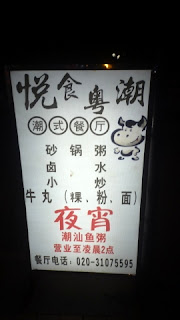 悦食粤潮
潮式餐厅
砂锅粥
卤水
小炒
牛丸（粿、粉、面）
夜宵
潮汕鱼粥
营业至凌晨2点
餐厅电话：020-31075595